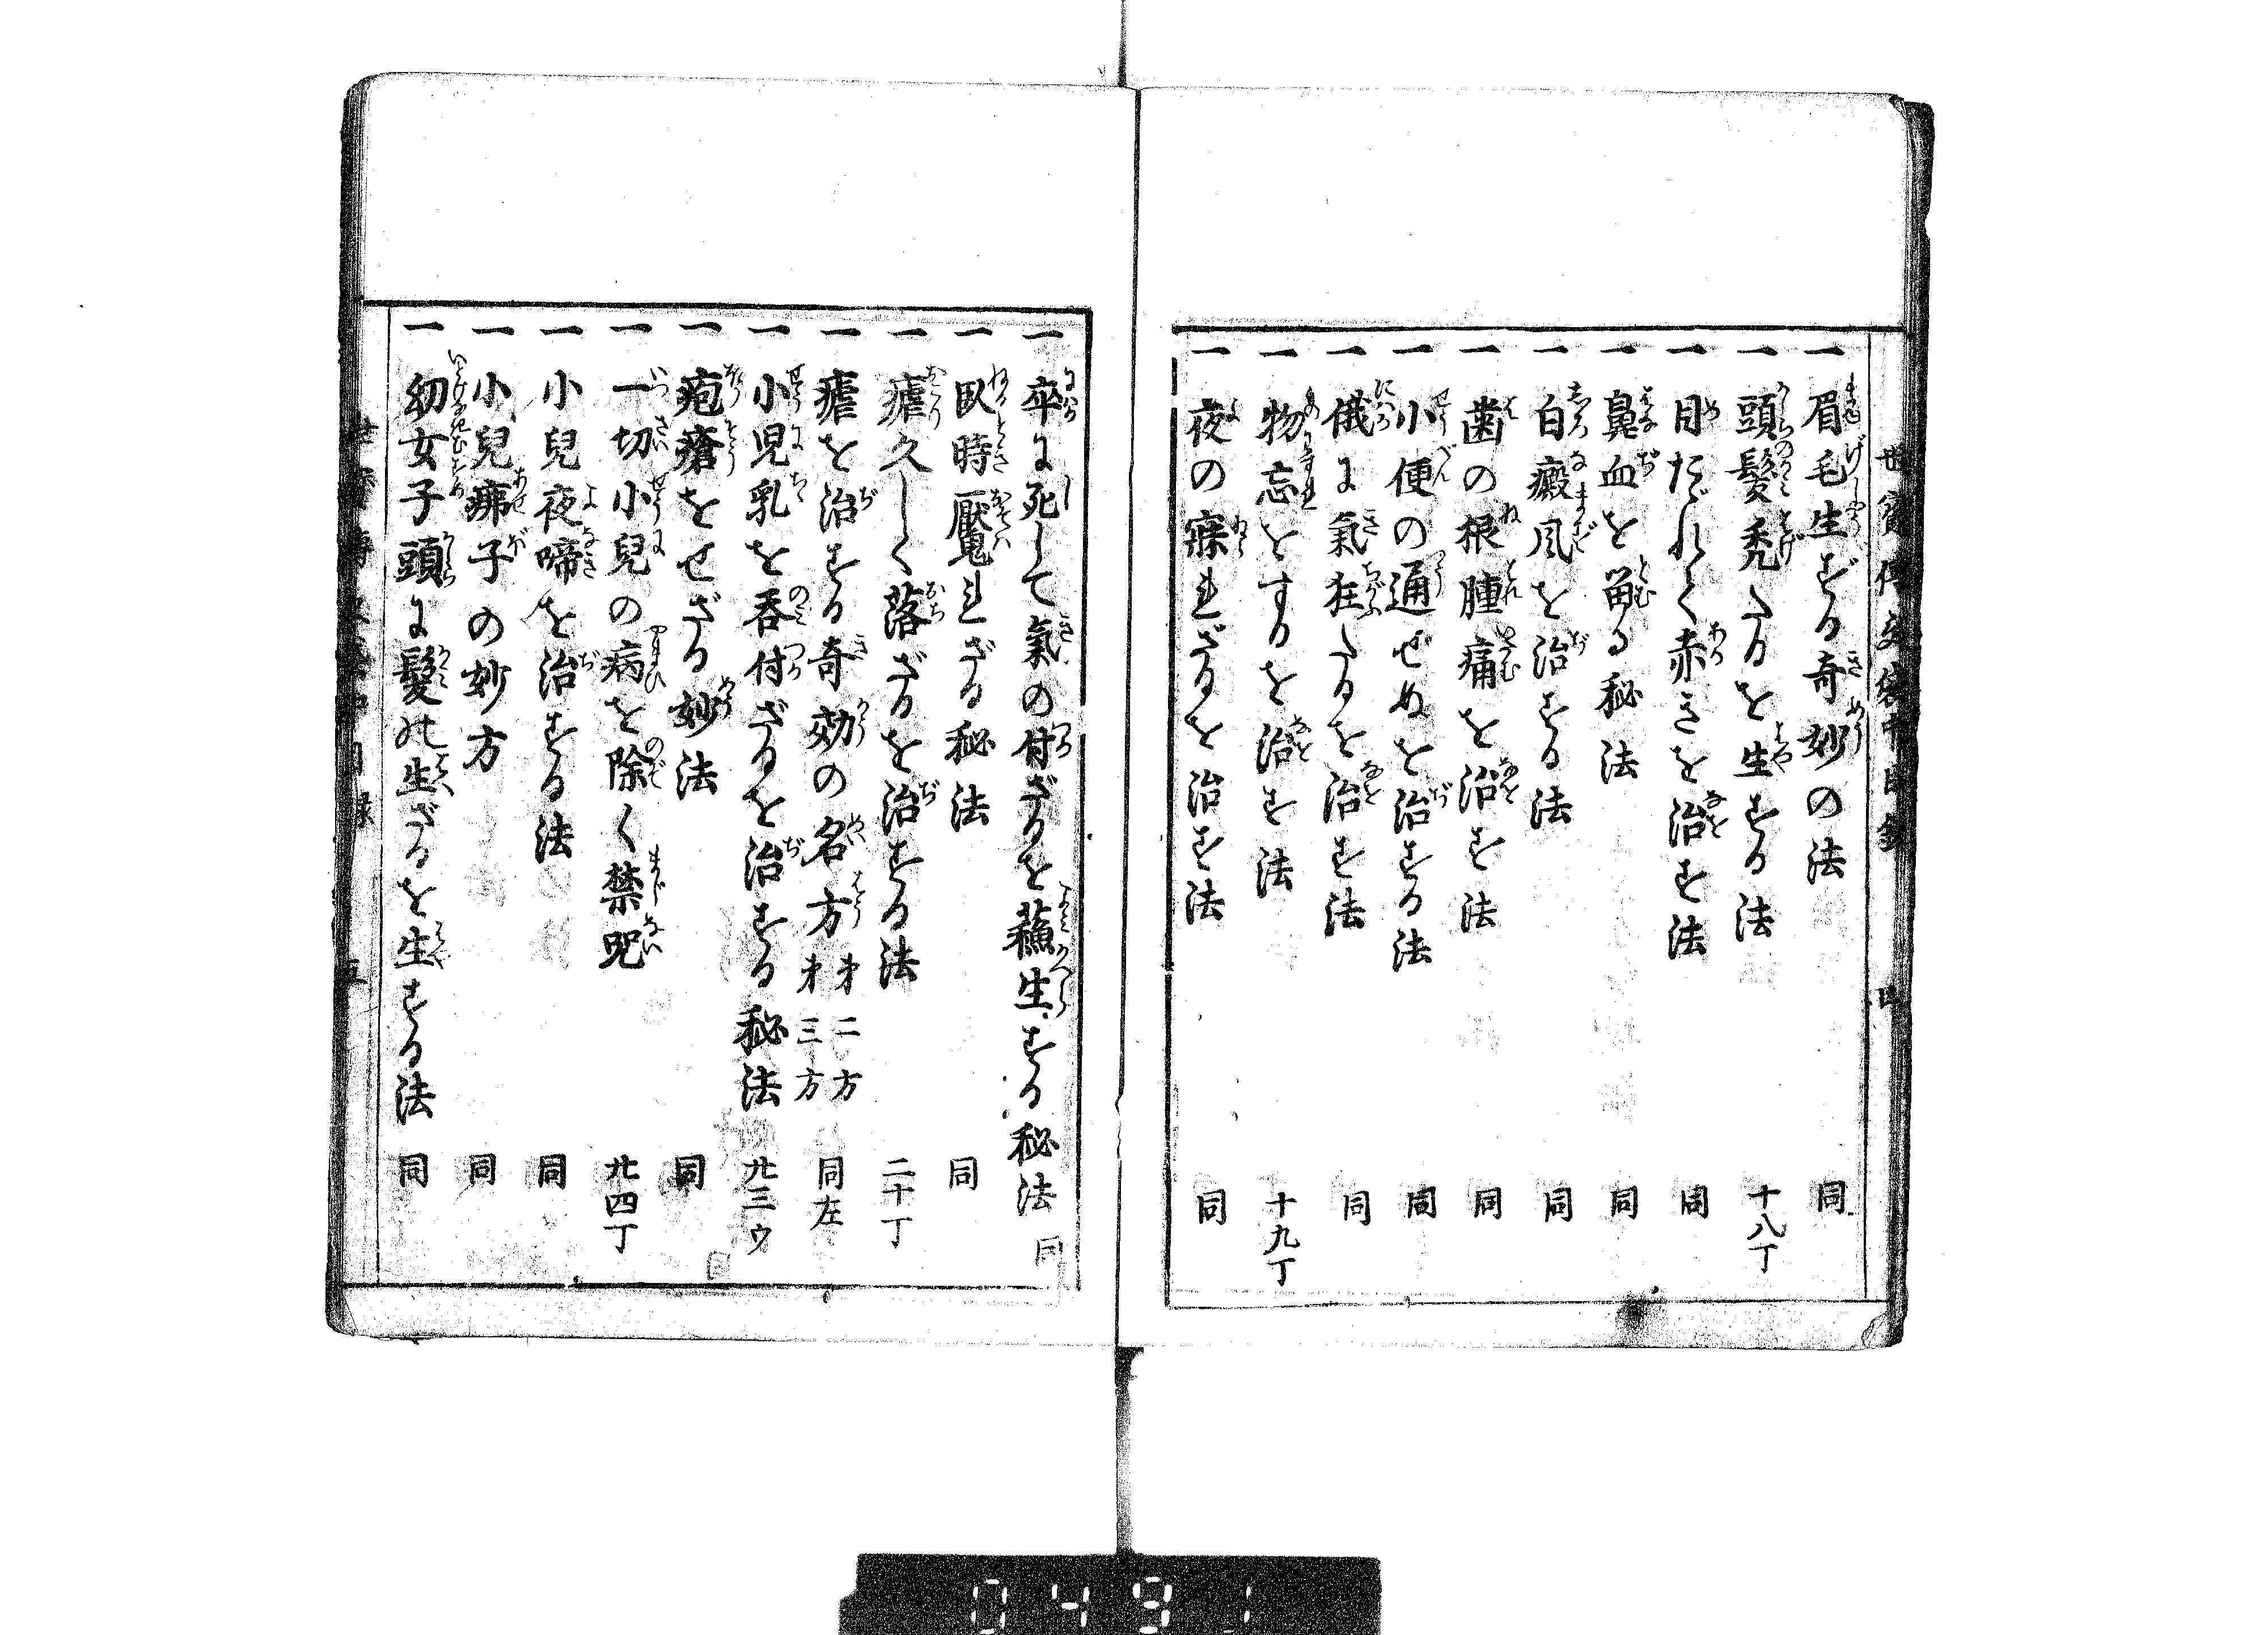 一眉毛生ざる奇妙の法 同
一頭髪禿たるを生ずる法 十八丁
一目たゞれく赤きを治す法 同
一鼻血を留る秘法 同
一白癜風を治する法 同
一歯の根腫痛を治す法 同
一小便の通ぜぬを治する法 同
一俄に氣狂たるを治す法 同
一物忘をするを治す法 十九丁
一夜の寐れざるを治す法 同
一卒に死して氣の付ざるを蘓生する秘法 同
一臥時魘れざる秘法 同
一瘧久しく落ざるを治する法 二十丁
一瘧を治する奇効の名方 才二方 才三方 同左
一小児乳を呑付ざるを治する秘法 廿三ウ
一疱瘡をせざる妙法 同
一一切小兒の病を除く禁呪 廿四丁
一小兒夜啼を治する法 同
一小兒疿子の妙方 同
一幼女子頭に髪の生ざるを生ずる法 同
五
0491